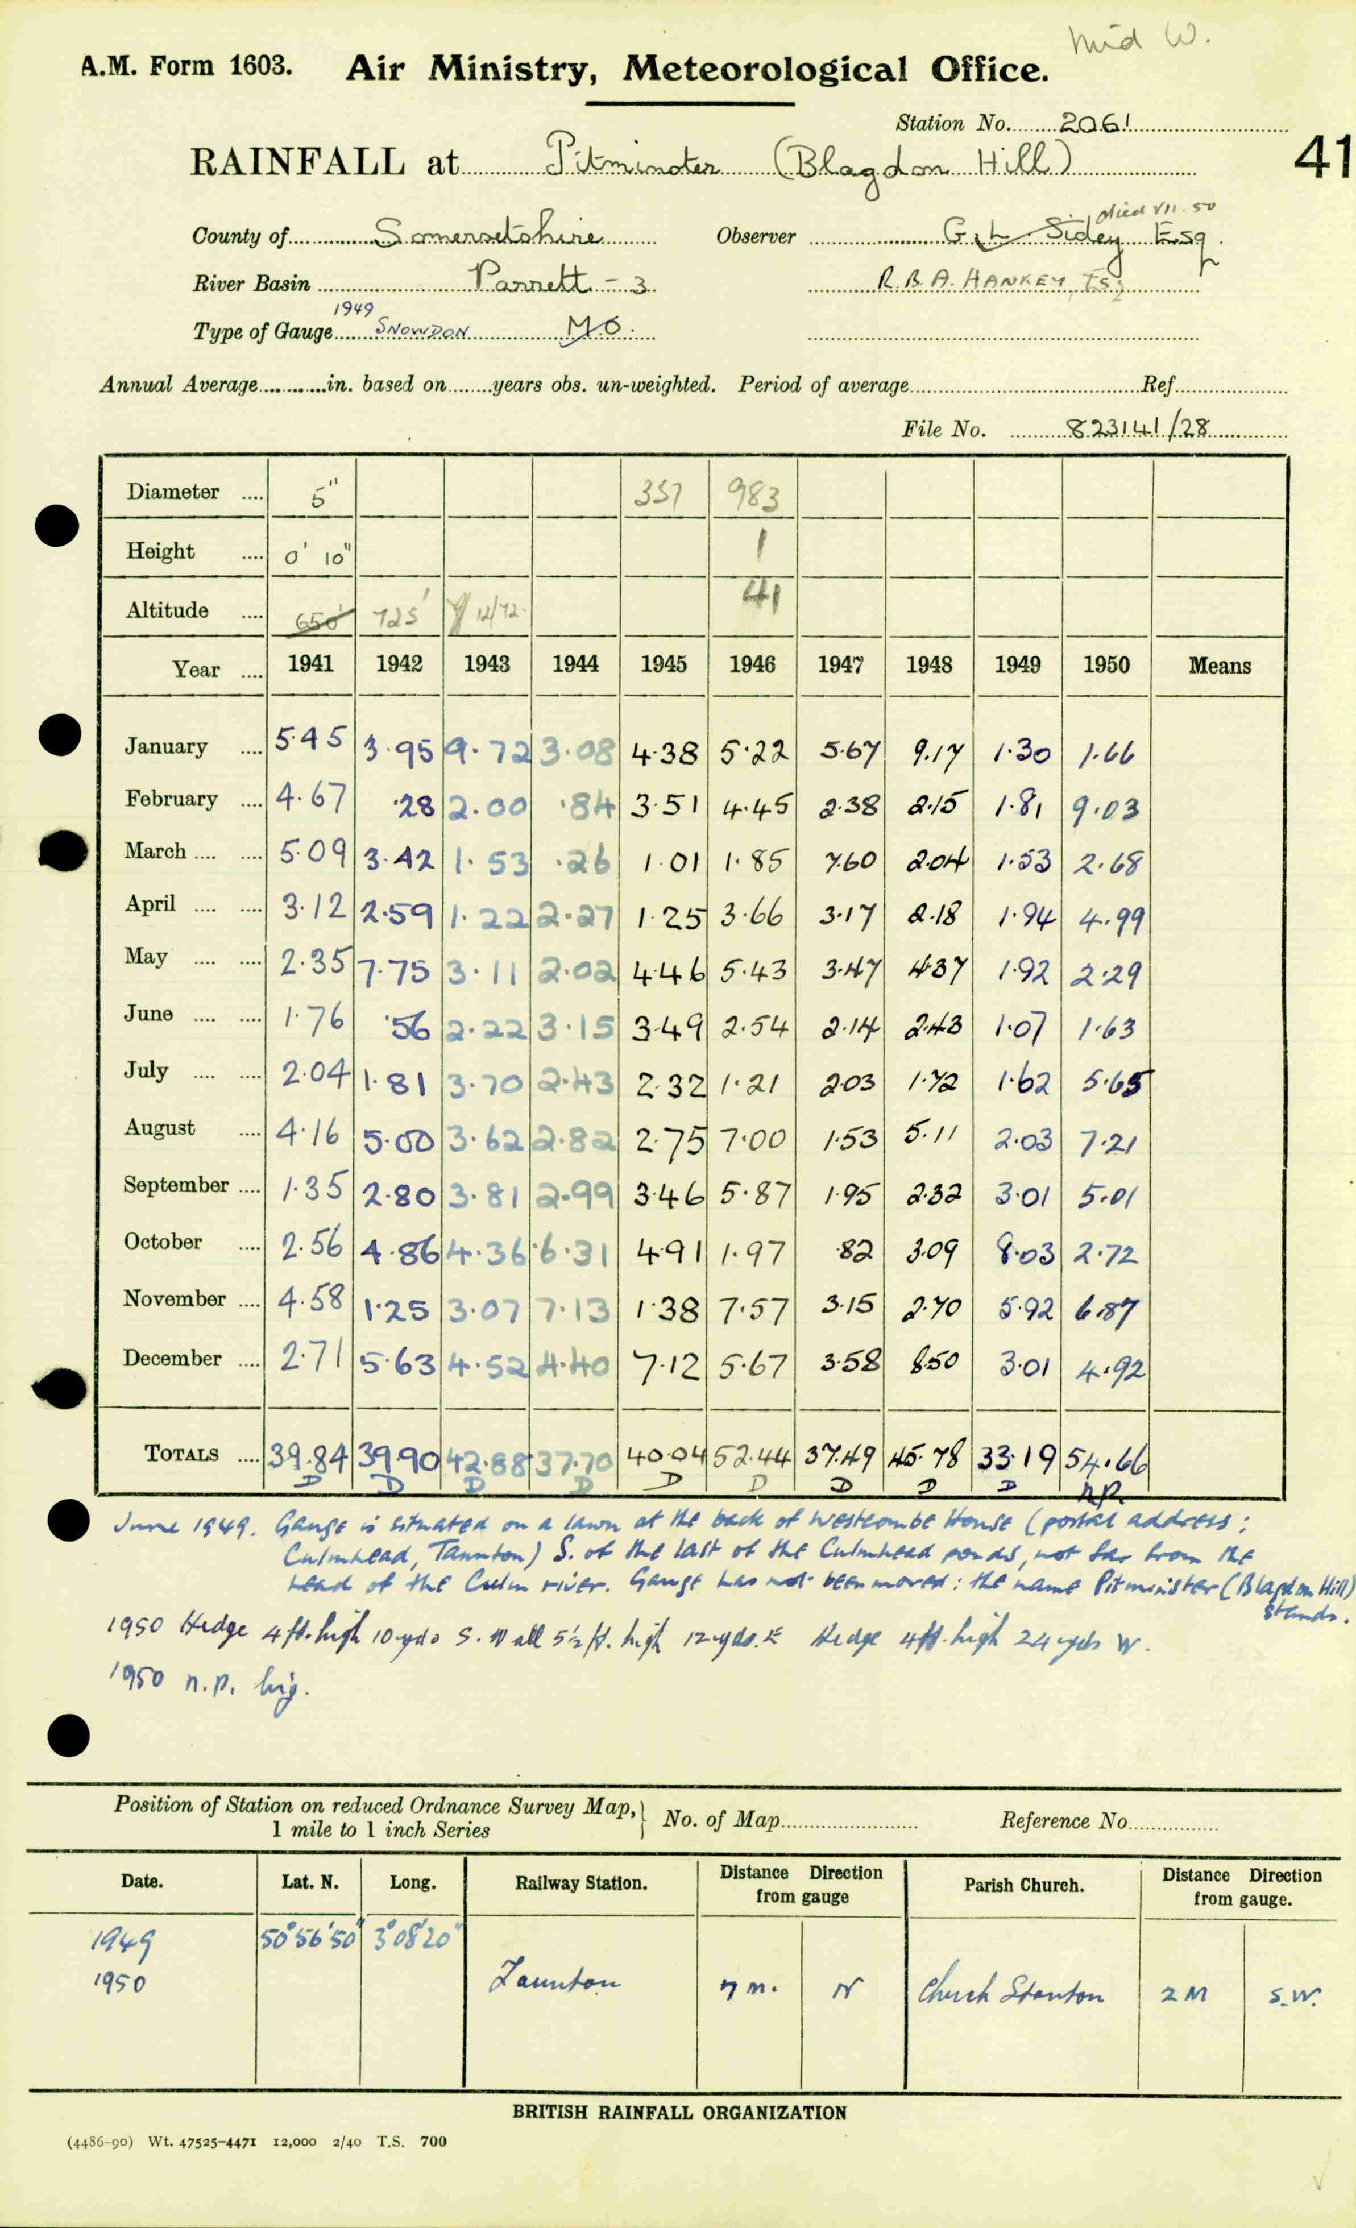 Mid W.
A.M. Form 1603. Air Ministry, Meteorological Office.
Station No. 2061
RAINFALL at Pitminster (Blagdon Hill) 41
died VII. 50
County of Somersetshire Observer G. L. Sidey Esq.
River Basin Parrett - 3 R. B. A. HANKEY, Esq
1949
Type of Gauge SNOWDON M.O.
Annual Average in. based on years obs. un-weighted. Period of average Ref
File No. 823141/28
Diameter 5" 357 983
Height 0' 10" 1
Altitude 650' 725' 12/72 41
Year 1941 1942 1943 1944 1945 1946 1947 1948 1949 1950 Means
January 5.45 3.95 9.72 3.08 4.38 5.22 5.67 9.17 1.30 1.66
February 4.67 .28 2.00 .84 3.51 4.45 2.38 2.15 1.81 9.03
March 5.09 3.42 1.53 .26 1.01 1.85 7.60 2.04 1.53 2.68
April 3.12 2.59 1.22 2.27 1.25 3.66 3.17 2.18 1.94 4.99
May 2.35 7.75 3.11 2.02 4.46 5.43 3.47 4.37 1.92 2.29
June 1.76 .56 2.22 3.15 3.49 2.54 2.14 2.43 1.07 1.63
July 2.04 1.81 3.70 2.43 2.32 1.21 2.03 1.72 1.62 5.65
August 4.16 5.00 3.62 2.82 2.75 7.00 1.53 5.11 2.03 7.21
September 1.35 2.80 3.81 2.99 3.46 5.87 1.95 2.32 3.01 5.01
October 2.56 4.86 4.36 6.31 4.91 1.97 .82 3.09 8.03 2.72
November 4.58 1.25 3.07 7.13 1.38 7.57 3.15 2.70 5.92 6.87
December 2.71 5.63 4.52 4.40 7.12 5.67 3.58 8.50 3.01 4.92
TOTALS 39.84 39.90 42.88 37.70 40.04 52.44 37.49 45.78 33.19 54.66
D D D D D D D D D n.p.
June 1949. Gauge is situated on a lawn at the back of Westcombe House (postal address:
Culmhead, Taunton) S. of the last of the Culmhead ponds, not far from the
head of the Culm river. Gauge has not been moved: the name Pitminister (Blagdon Hill)
stands.
1950 Hedge 4 ft. high 10 yds S. Wall 5½ ft. high 12 yds. E Hedge 4 ft. high 24 yds W.
1950 n.p. big.
Position of Station on reduced Ordnance Survey Map,
1 mile to 1 inch Series No. of Map Reference No.
Date. Lat. N. Long. Railway Station. Distance Direction from gauge Parish Church. Distance Direction from gauge.
1949 50° 56' 50" 3° 08' 20"
1950 Taunton 7 m. N Church Stanton 2 M S.W.
BRITISH RAINFALL ORGANIZATION
(4486-90) Wt. 47525-4471 12,000 2/40 T.S. 700